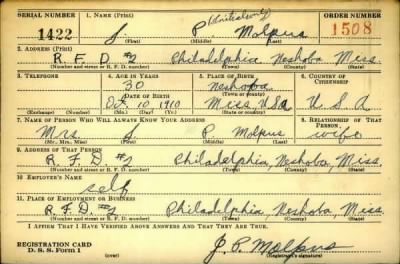 SERIAL NUMBER 1. NAME (Print) (Initials only) ORDER NUMBER
1422 J. P. Molpus 1508
(First) (Middle) (Last)
2. ADDRESS (Print)
R. F. D. #2 Philadelphia Neshoba Miss.
(Number and street or R. F. D. number) (Town) (County) (State)
3. TELEPHONE 4. AGE IN YEARS 5. PLACE OF BIRTH 6. COUNTRY OF CITIZENSHIP
30 Neshoba
DATE OF BIRTH (Town or county)
Oct. 10, 1910 Miss. USA U. S. A
(Exchange) (Number) (Mo.) (Day) (Yr.) (State or country)
7. NAME OF PERSON WHO WILL ALWAYS KNOW YOUR ADDRESS 8. RELATIONSHIP OF THAT PERSON
Mrs. J. P. Molpus wife
(Mr., Mrs., Miss) (First) (Middle) (Last)
9. ADDRESS OF THAT PERSON
R. F. D. #2 Philadelphia, Neshoba, Miss.
(Number and street or R. F. D. number) (Town) (County) (State)
10. EMPLOYER'S NAME
self
11. PLACE OF EMPLOYMENT OR BUSINESS
R. F. D. #2 Philadelphia, Neshoba, Miss.
(Number and street or R. F. D. number) (Town) (County) (State)
I AFFIRM THAT I HAVE VERIFIED ABOVE ANSWERS AND THAT THEY ARE TRUE.
REGISTRATION CARD
D. S. S. Form 1 J. P. Molpus
(Registrant's signature)